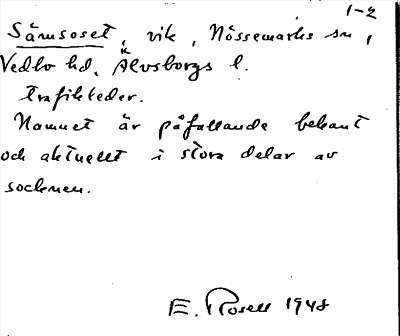 1-2
Särnsoset, vik, Nössemarks sn,
Vedbo hd, Älvsborgs l.
trafikleder.
Namnet är påfallande bekant
och aktuellt i stora delar av
socknen.
E. Rosell 1948